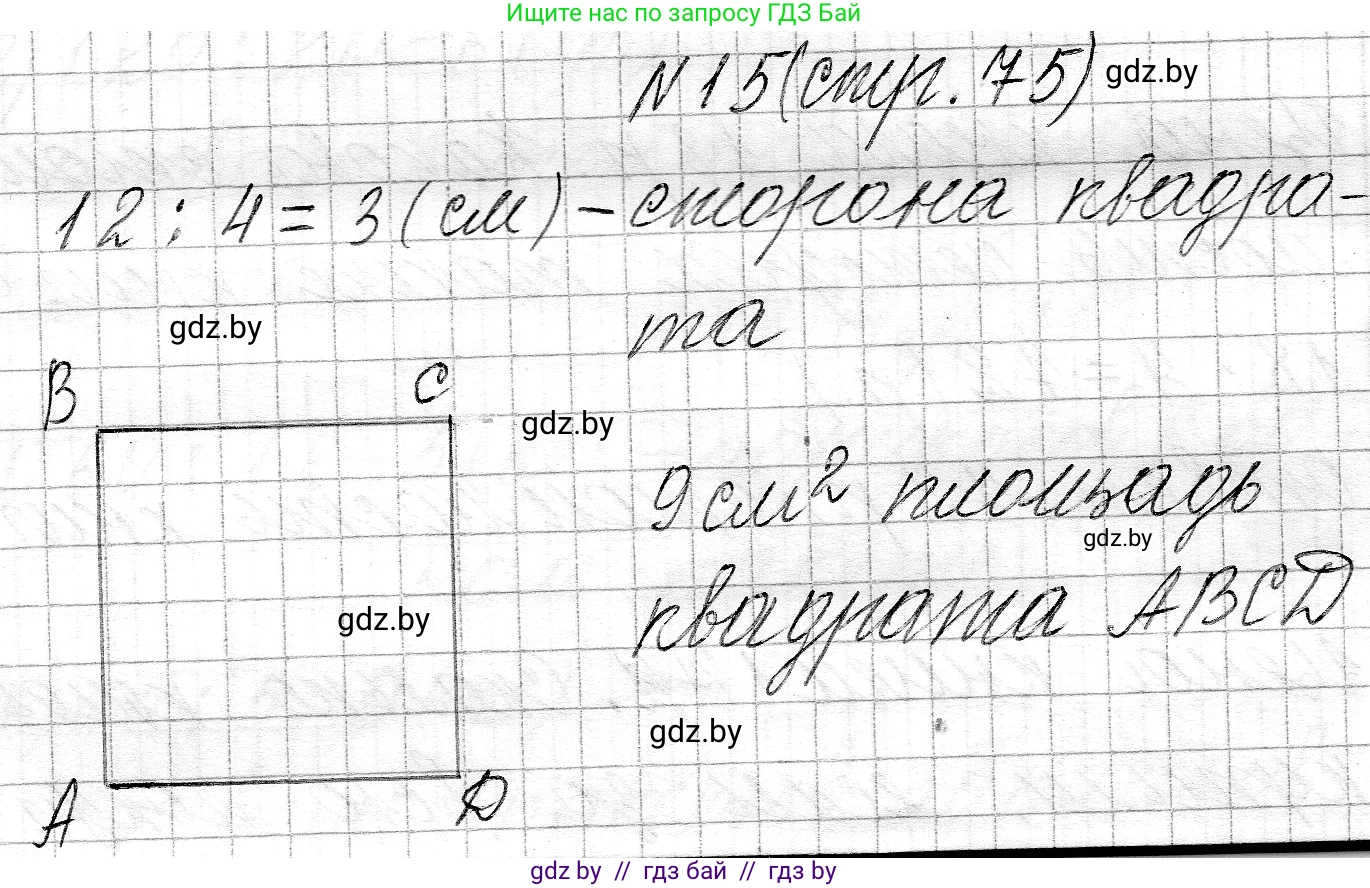 Ищите нас по запросу ГДЗ Бай
N15(стр. 75) gdz.by
12 : 4 = 3 (см) - сторона квадра-
gdz.by та
B C
gdz.by
9 см² площадь
gdz.by
gdz.by квадрата ABCD
gdz.by
A D
gdz.by // гдз бай // гдз by